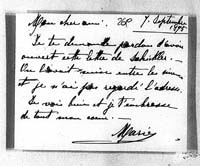 Mon cher ami. 268 7. Septembre
1895
Je te demande pardon d'avoir
ouvert cette lettre de
On l'avait mise entre les miennes
et je n'ai pas regardé l'adresse.
Je vais bien et je t'embrasse
de tout mon coeur.
Marie